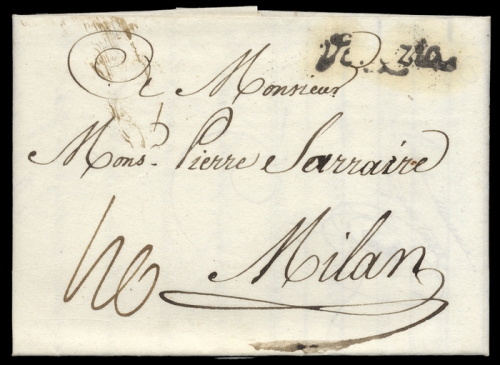 Venezia
A Monsieur
Mons.r Pierre Sarraire
Milan